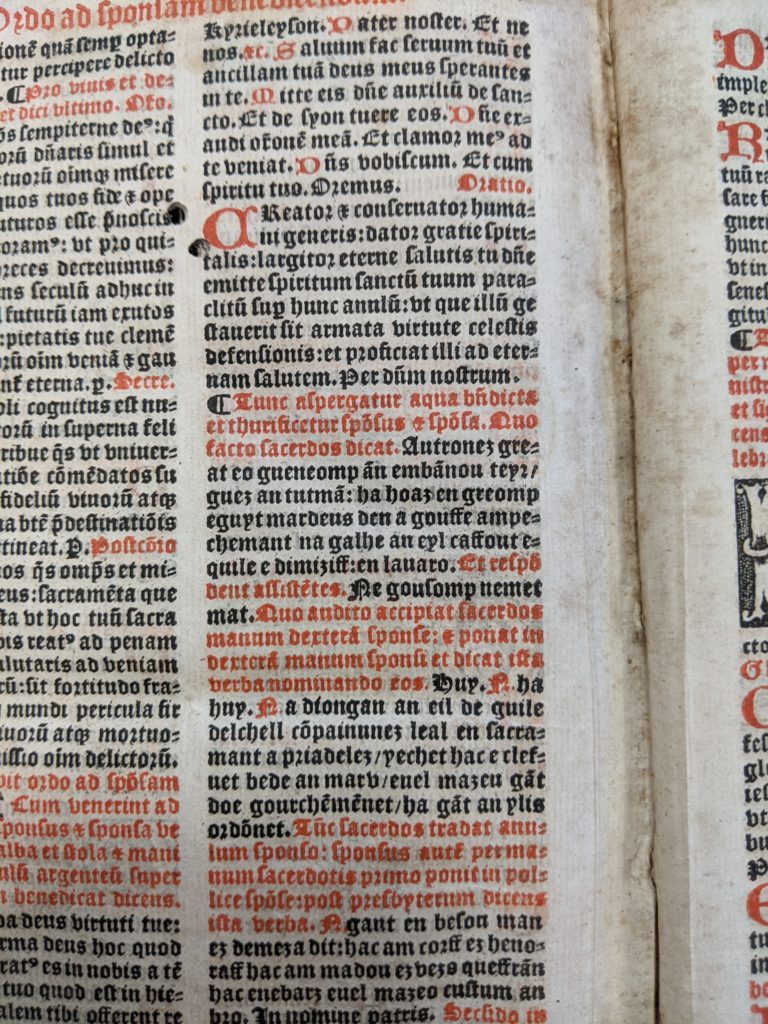 Ordo ad sponsam benedicendam.
ionē quā semꝑ opta-
tur percipere delicto
¶Pro viuis et de-
er dici vltimo. Oro.
sempiterne deꝰ: q̄
orū dn̄aris simul et
tuorū oīmqꝫ misere
quos tuos fide ⁊ ope
uturos esse p̄noscis
oramꝰ: vt pro qui-
preces decreuimus:
ens seculū adhuc in
futurū iam exutos
:pietatis tue clemē
orū oīm veniā ⁊ gau
eterna. p. Secre.
oli cognitus est nu-
torū in superna feli
ribue q̄s vt vniuer-
atiōe cōmēdatos su
fideliū viuorū atqꝫ
na btē p̄destinatiōis
tineat. P. Postcōio
os q̄s omp̄s et mi-
eus: sacramēta que
sta vt hoc tuū sacra
bis reatꝰ ad penam
alutaris ad veniam
rū: sit fortitudo fra-
mundi pericula fir
iuorū atqꝫ mortuo-
issio oīm delictorū.
pit ordo ad spōsam
Cum venerint ad
sponsus ⁊ sponsa ve
alba et stola ⁊ mani
ulū argenteū super
benedicat dicens.
ba deus virtuti tue:
rma deus hoc quod
ratꝰ es in nobis a tē
tuo quod est in hie-
alem tibi offerent re
Kyrieleyson. Pater noster. Et ne
nos. ⁊c. Saluum fac seruum tuū et
ancillam tuā deus meus sperantes
in te. Mitte eis dn̄e auxiliū de san-
cto. Et de syon tuere eos. Dn̄e ex-
audi or̄onē meā. Et clamor meꝰ ad
te veniat. Dn̄s vobiscum. Et cum
spiritu tuo. Oremus. Oratio.
CReator ⁊ conseruator huma-
ni generis: dator gratie spiri-
talis: largitor eterne salutis tu dn̄e
emitte spiritum sanctū tuum para-
clitū suꝑ hunc anulū: vt que illū ge
stauerit sit armata virtute celestis
defensionis: et proficiat illi ad eter-
nam salutem. Per dn̄m nostrum.
¶Tunc aspergatur aqua bn̄dicta
et thurificetur spōsus ⁊ spōsa. Quo
facto sacerdos dicat. Autronez gre-
at eo gueneomp ān embānou teyr/
guez an tutmā: ha hoaz en greomp
eguyt mardeus den a gouffe ampe-
chemant na galhe an eyl caffout e-
quile e dimiziff: en lauaro. Et respō
dent assistētes. Ne gousomp nemet
mat. Quo audito accipiat sacerdos
manum dexterā sponse: ⁊ ponat in
dexterā manum sponsi et dicat ista
verba nominando eos. Huy. N. ha
huy. N. a diongan an eil de guile
delchell cōpainunez leal en sacra-
mant a priadelez/ yechet hac e clef-
uet bede an maru/ euel mazeu gāt
doe gourchēmēnet/ ha gāt an ylis
ordōnet. Tūc sacerdos tradat anu-
lum sponso: sponsus autē per ma-
num sacerdotis primo ponit in pol-
lice spōse: post presbyterum dicens
ista verba. N gant en besou man
ez demeza dit: hac am corff ez heno-
raff hac am madou ez vezo queffrān
hac enebarz euel mazeo custum an
bro. In nomine patris. Secūdo in
imple
Per
tuū
sare
guer
hunc
vt in
senes
gitu
per
nistr
et si
cens
lebr